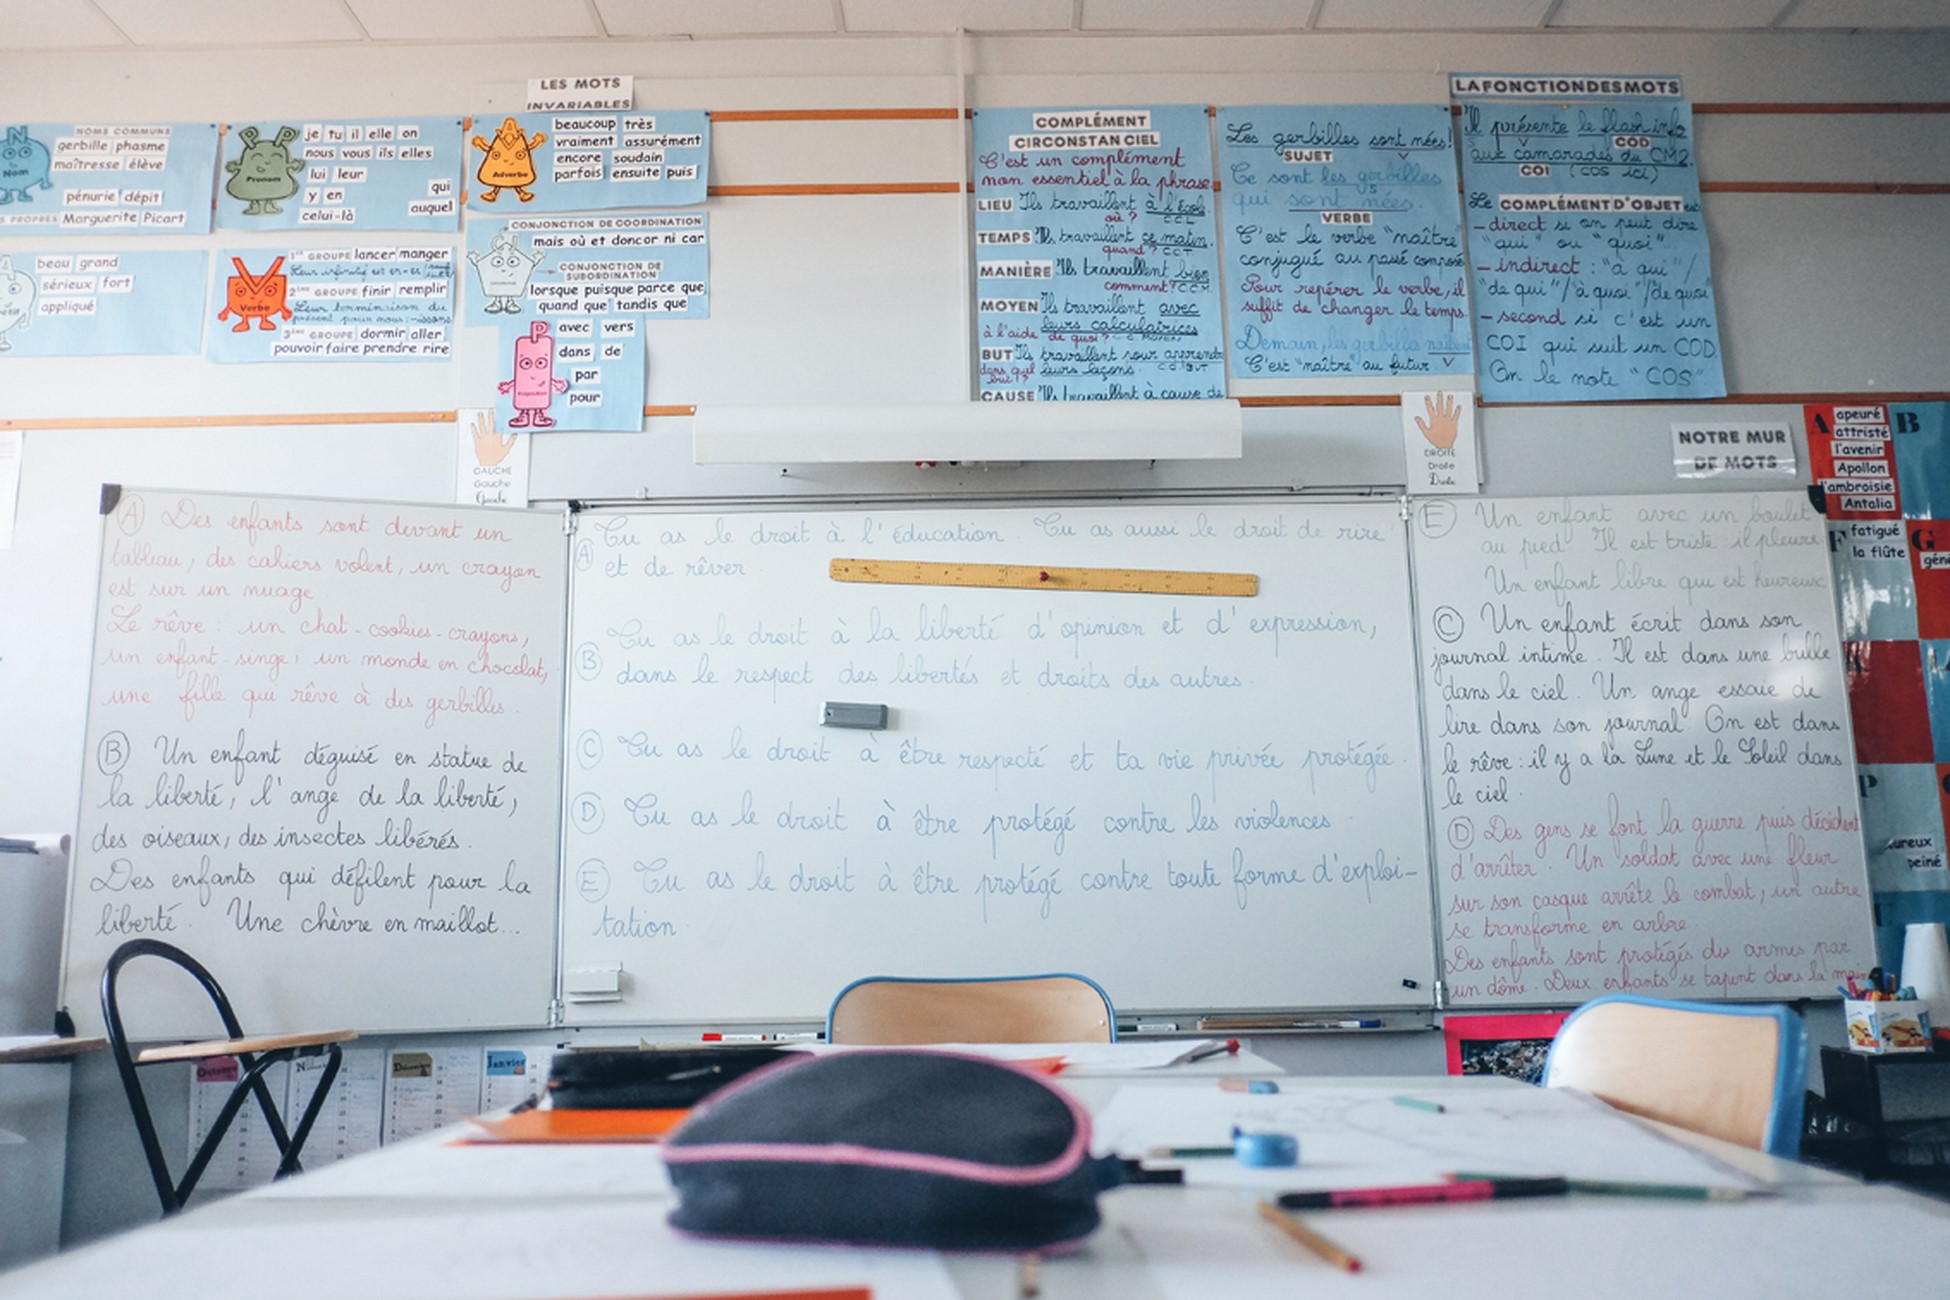 LES MOTS
INVARIABLES
LA FONCTION DES MOTS
NOMS COMMUNS
gerbille phasme
maîtresse élève
pénurie dépit
S PROPRES Marguerite Picart
Nom
Pronom
je tu il elle on
nous vous ils elles
lui leur
y en
qui
celui-là
auquel
Adverbe
beaucoup très
vraiment assurément
encore soudain
parfois ensuite puis
beau grand
sérieux fort
appliqué
Verbe
1er GROUPE lancer manger
Leur infinitif est en -er
2ème GROUPE finir remplir
Leur terminaison du
présent pour nous : -issons
3ème GROUPE dormir aller
pouvoir faire prendre rire
CONJONCTION DE COORDINATION
mais où et donc or ni car
CONJONCTION DE
SUBORDINATION
lorsque puisque parce que
quand que tandis que
avec vers
dans de
par
pour
COMPLÉMENT
CIRCONSTANCIEL
C'est un complément
non essentiel à la phrase
LIEU Ils travaillent à l'école.
où ? CCL
TEMPS Ils travaillent ce matin.
quand ? CCT
MANIÈRE Ils travaillent bien
comment ? CCM
MOYEN Ils travaillent avec
leurs calculatrices
à l'aide de quoi ? CC MOYEN
BUT Ils travaillent pour apprendre
leurs leçons. CC BUT
dans quel
but ?
CAUSE Ils travaillent à cause de
Les gerbilles sont nées !
SUJET V
Ce sont les gerbilles
S
qui sont nées.
VERBE
C'est le verbe "naître"
conjugué au passé composé
Pour repérer le verbe, il
suffit de changer le temps.
Demain, les gerbilles
C'est "naître" au futur V
Il présente le flash info
V COD
aux camarades du CM2.
COI (COS ici)
Le COMPLÉMENT D'OBJET est
- direct si on peut dire
"qui" ou "quoi".
- indirect : "à qui" /
"de qui" / "à quoi" / "de quoi"
- second si c'est un
COI qui suit un COD.
On le note "COS"
GAUCHE
Gauche
Gauche
DROITE
Droite
Droite
NOTRE MUR
DE MOTS
A
apeuré
attristé
l'avenir
Apollon
l'ambroisie
Antalia
B
F
fatigué
la flûte
G
géni
P
eureux
peiné
A Des enfants sont devant un
tableau, des cahiers volent, un crayon
est sur un nuage
Le rêve : un chat - cookies - crayons,
un enfant-singe, un monde en chocolat,
une fille qui rêve à des gerbilles.
B Un enfant déguisé en statue de
la liberté, l'ange de la liberté,
des oiseaux, des insectes libérés.
Des enfants qui défilent pour la
liberté. Une chèvre en maillot...
A Tu as le droit à l'éducation. Tu as aussi le droit de rire
et de rêver.
B Tu as le droit à la liberté d'opinion et d'expression,
dans le respect des libertés et droits des autres.
C Tu as le droit à être respecté et ta vie privée protégée.
D Tu as le droit à être protégé contre les violences.
E Tu as le droit à être protégé contre toute forme d'exploi-
tation.
E Un enfant avec un boulet
au pied Il est triste : il pleure
Un enfant libre qui est heureux
C Un enfant écrit dans son
journal intime. Il est dans une bulle
dans le ciel. Un ange essaie de
lire dans son journal. On est dans
le rêve : il y a la Lune et le Soleil dans
le ciel.
D Des gens se font la guerre puis décident
d'arrêter. Un soldat avec une fleur
sur son casque arrête le combat, un autre
se transforme en arbre.
Des enfants sont protégés des armes par
un dôme. Deux enfants se tapent dans la main
Octobre
Décembre
Janvier